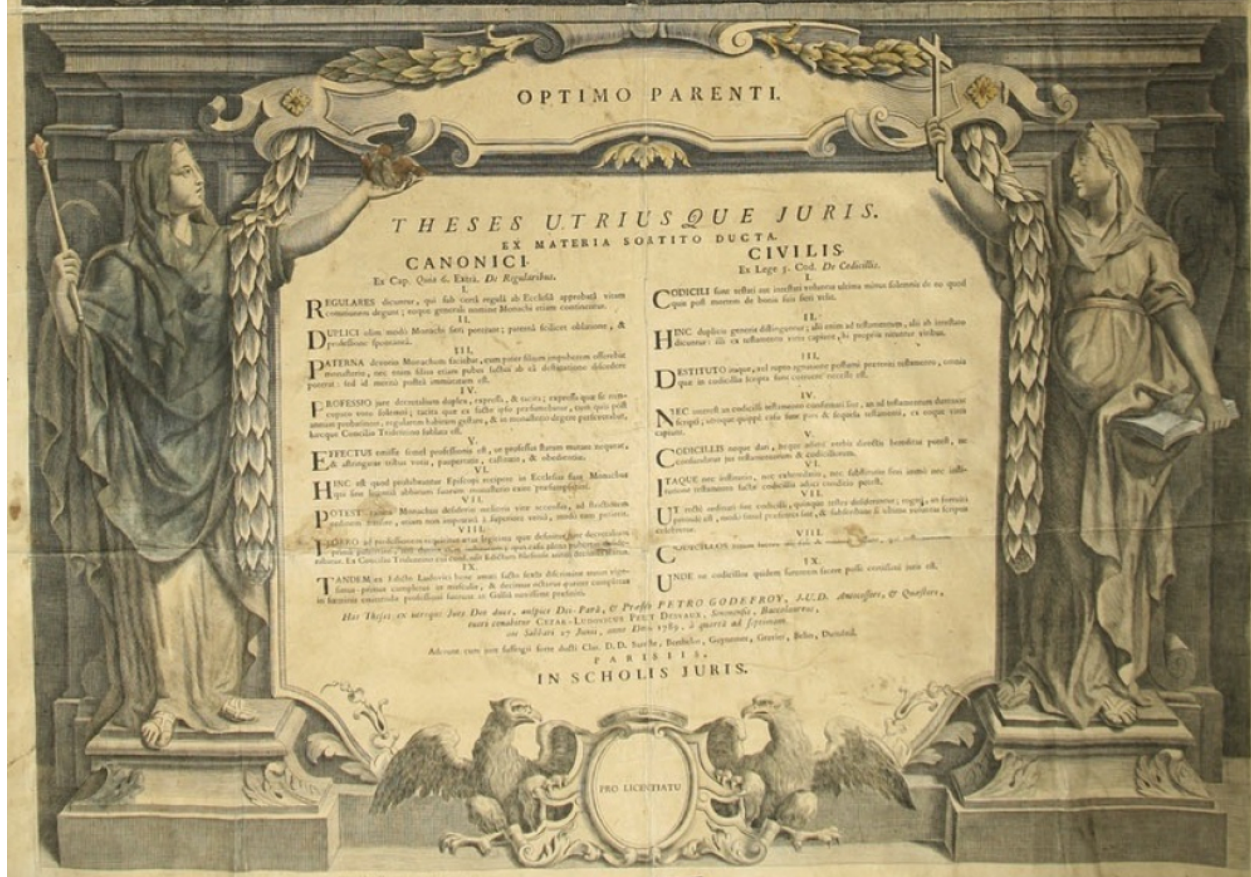 OPTIMO PARENTI.
THESES UTRIUSQUE JURIS.
EX MATERIA SORTITO DUCTA.
CANONICI.
Ex Cap. Quia 6. Extrà. De Regularibus.
I.
REGULARES dicuntur, qui sub certâ regulâ ab Ecclesiâ approbatâ vitam
communem degunt; eoque generali nomine Monachi etiam continentur.
II.
DUPLICI olim modo Monachi fieri poterant; paternâ scilicet oblatione, &
professione spontaneâ.
III.
PATERNA devotio Monachum faciebat, cum pater filium impuberem offerebat
monasterio, nec enim filius etiam pubes factus ab eâ destinatione discedere
poterat: sed id meritò posteà immutatum est.
IV.
PROFESSIO jure decretalium duplex, expressa, & tacita; expressa quæ fit
voto solemni; tacita quæ ex facto ipso præsumebatur, cum quis post
annum probationis, regularem habitum gestans, & in monasterio degere perseverabat,
hæcque Concilio Tridentino sublata est.
V.
EFFECTUS emissæ semel professionis est, ut professus statum mutare nequeat,
& astringatur tribus votis, paupertatis, castitatis, & obedientiæ.
VI.
HINC est quod prohibeantur Episcopi recipere in Ecclesiis suis Monachos
qui sine licentiâ abbatum suorum monasterio exire præsumpserint.
VII.
POTEST tamen Monachus desiderio melioris vitæ accensus, ad strictiorem
ordinem transire, etiam non impetratâ à superiore veniâ, modò eam petierit.
VIII.
PORRO ad professionem requiritur ætas legitima quæ definitur jure decretalium
IX.
TANDEM ex Edicto Ludovici
CIVILIS.
Ex Lege 5. Cod. De Codicillis.
I.
CODICILI sunt testati aut intestati voluntas ultima minus solemnis de eo quod
quis post mortem de bonis suis fieri velit.
II.
HINC duplicis generis distinguuntur; alii enim ad testamentum, alii ab intestato
dicuntur: illi ex testamento vires capiunt, hi propriis nituntur viribus.
III.
DESTITUTO itaque, vel rupto agnatione postumi præterea testamento, omnia
quæ in codicillis scripta sunt corruere necesse est.
IV.
NEC interest an codicilli testamento confirmati sint, an ad testamentum duntaxat
scripti; utroque quippè casu sunt pars & sequela testamenti, ex eoque vires
capiunt.
V.
CODICILLIS neque dari, neque adimi verbis directis hereditas potest, ne
confundatur jus testamentorum & codicillorum.
VI.
ITAQUE nec institutio, nec exheredatio, nec substitutio fieri immò nec
testamento factæ codicillis adjici conditio potest.
VII.
UT rectè ordinati sint codicilli, quinque testes desiderantur; rogati, an fortuiti
perindè est, modò simul præsentes sint, & subscribant si ultima voluntas scriptis
celebretur.
VIII.
IX.
UNDE ne codicillos quidem furentem facere posse certissimi juris est.
Has Theses ex utroque Jure Deo duce, auspice Dei-Parâ, & Præside PETRO GODEFROY, J.U.D. Antecessore, & Quæstore,
tueri conabitur CÆSAR-LUDOVICUS PETIT DESVAUX, Senonensis, Baccalaureus,
die Sabbati 27 Junii, anno Dni. 1789, à quartâ ad septimam.
Aderunt cum jure suffragii sorte ducti Clar. D.D.
PARISIIS,
IN SCHOLIS JURIS.
PRO LICENTIATU